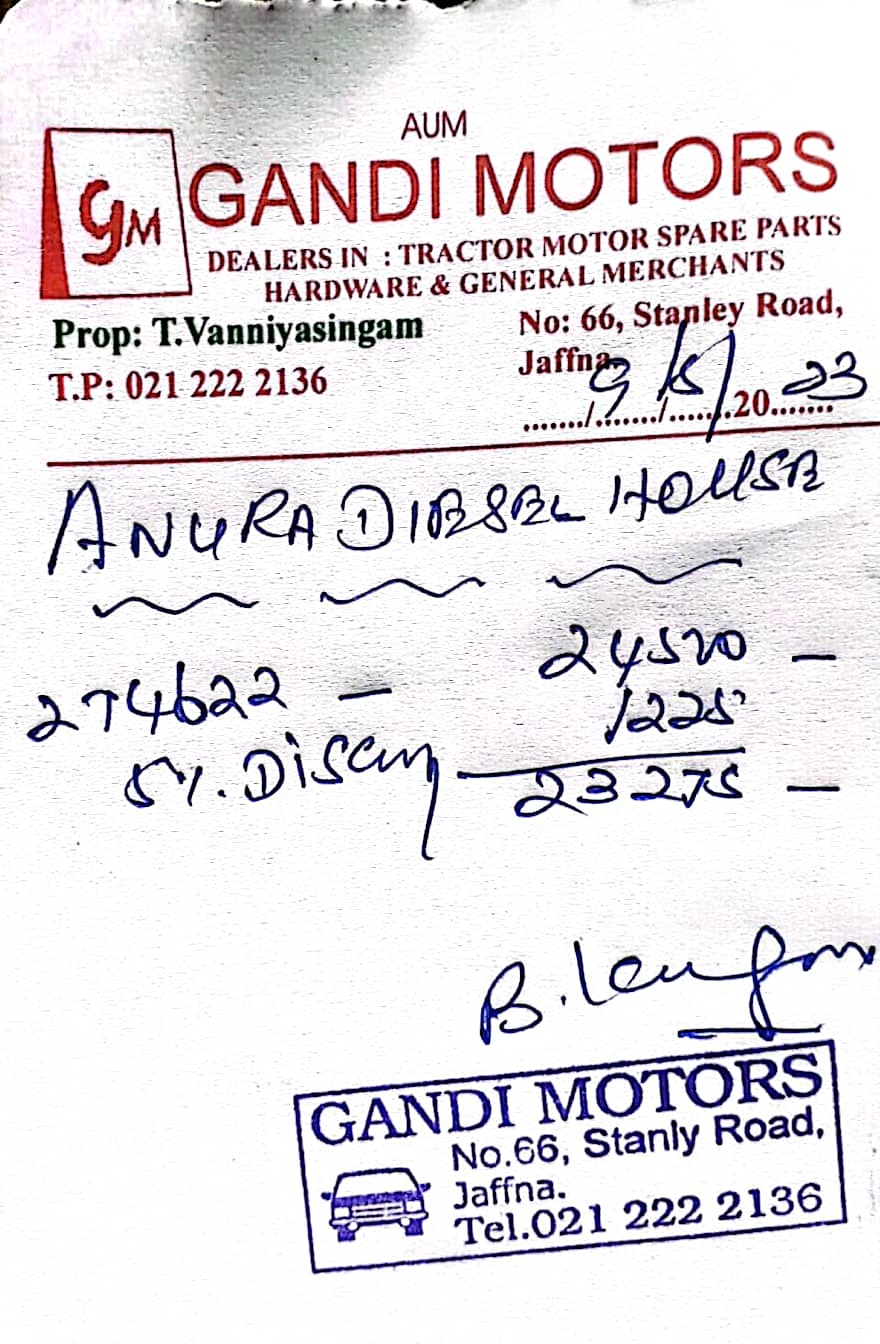 AUM
GM
GANDI MOTORS
DEALERS IN : TRACTOR MOTOR SPARE PARTS
HARDWARE & GENERAL MERCHANTS
Prop: T.Vanniyasingam
T.P: 021 222 2136
No: 66, Stanley Road,
Jaffna.
......./......./.......20.......
9/5/ 23
ANURA DIESEL HOUSE
274622 — 24500 —
5%. 1225
23275 —
B.
GANDI MOTORS
No.66, Stanly Road,
Jaffna.
Tel.021 222 2136